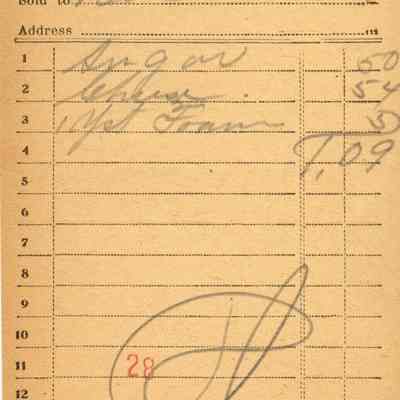 Sold to
Address
1 Sugar 50
2 Cheese 54
3 1 Yst Foam 5
4 1,09
5
6
7
8
9
10
11 28
12